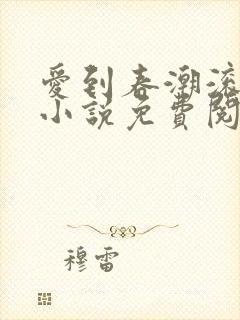 愛到春潮滚
小説免費閱
穆雷